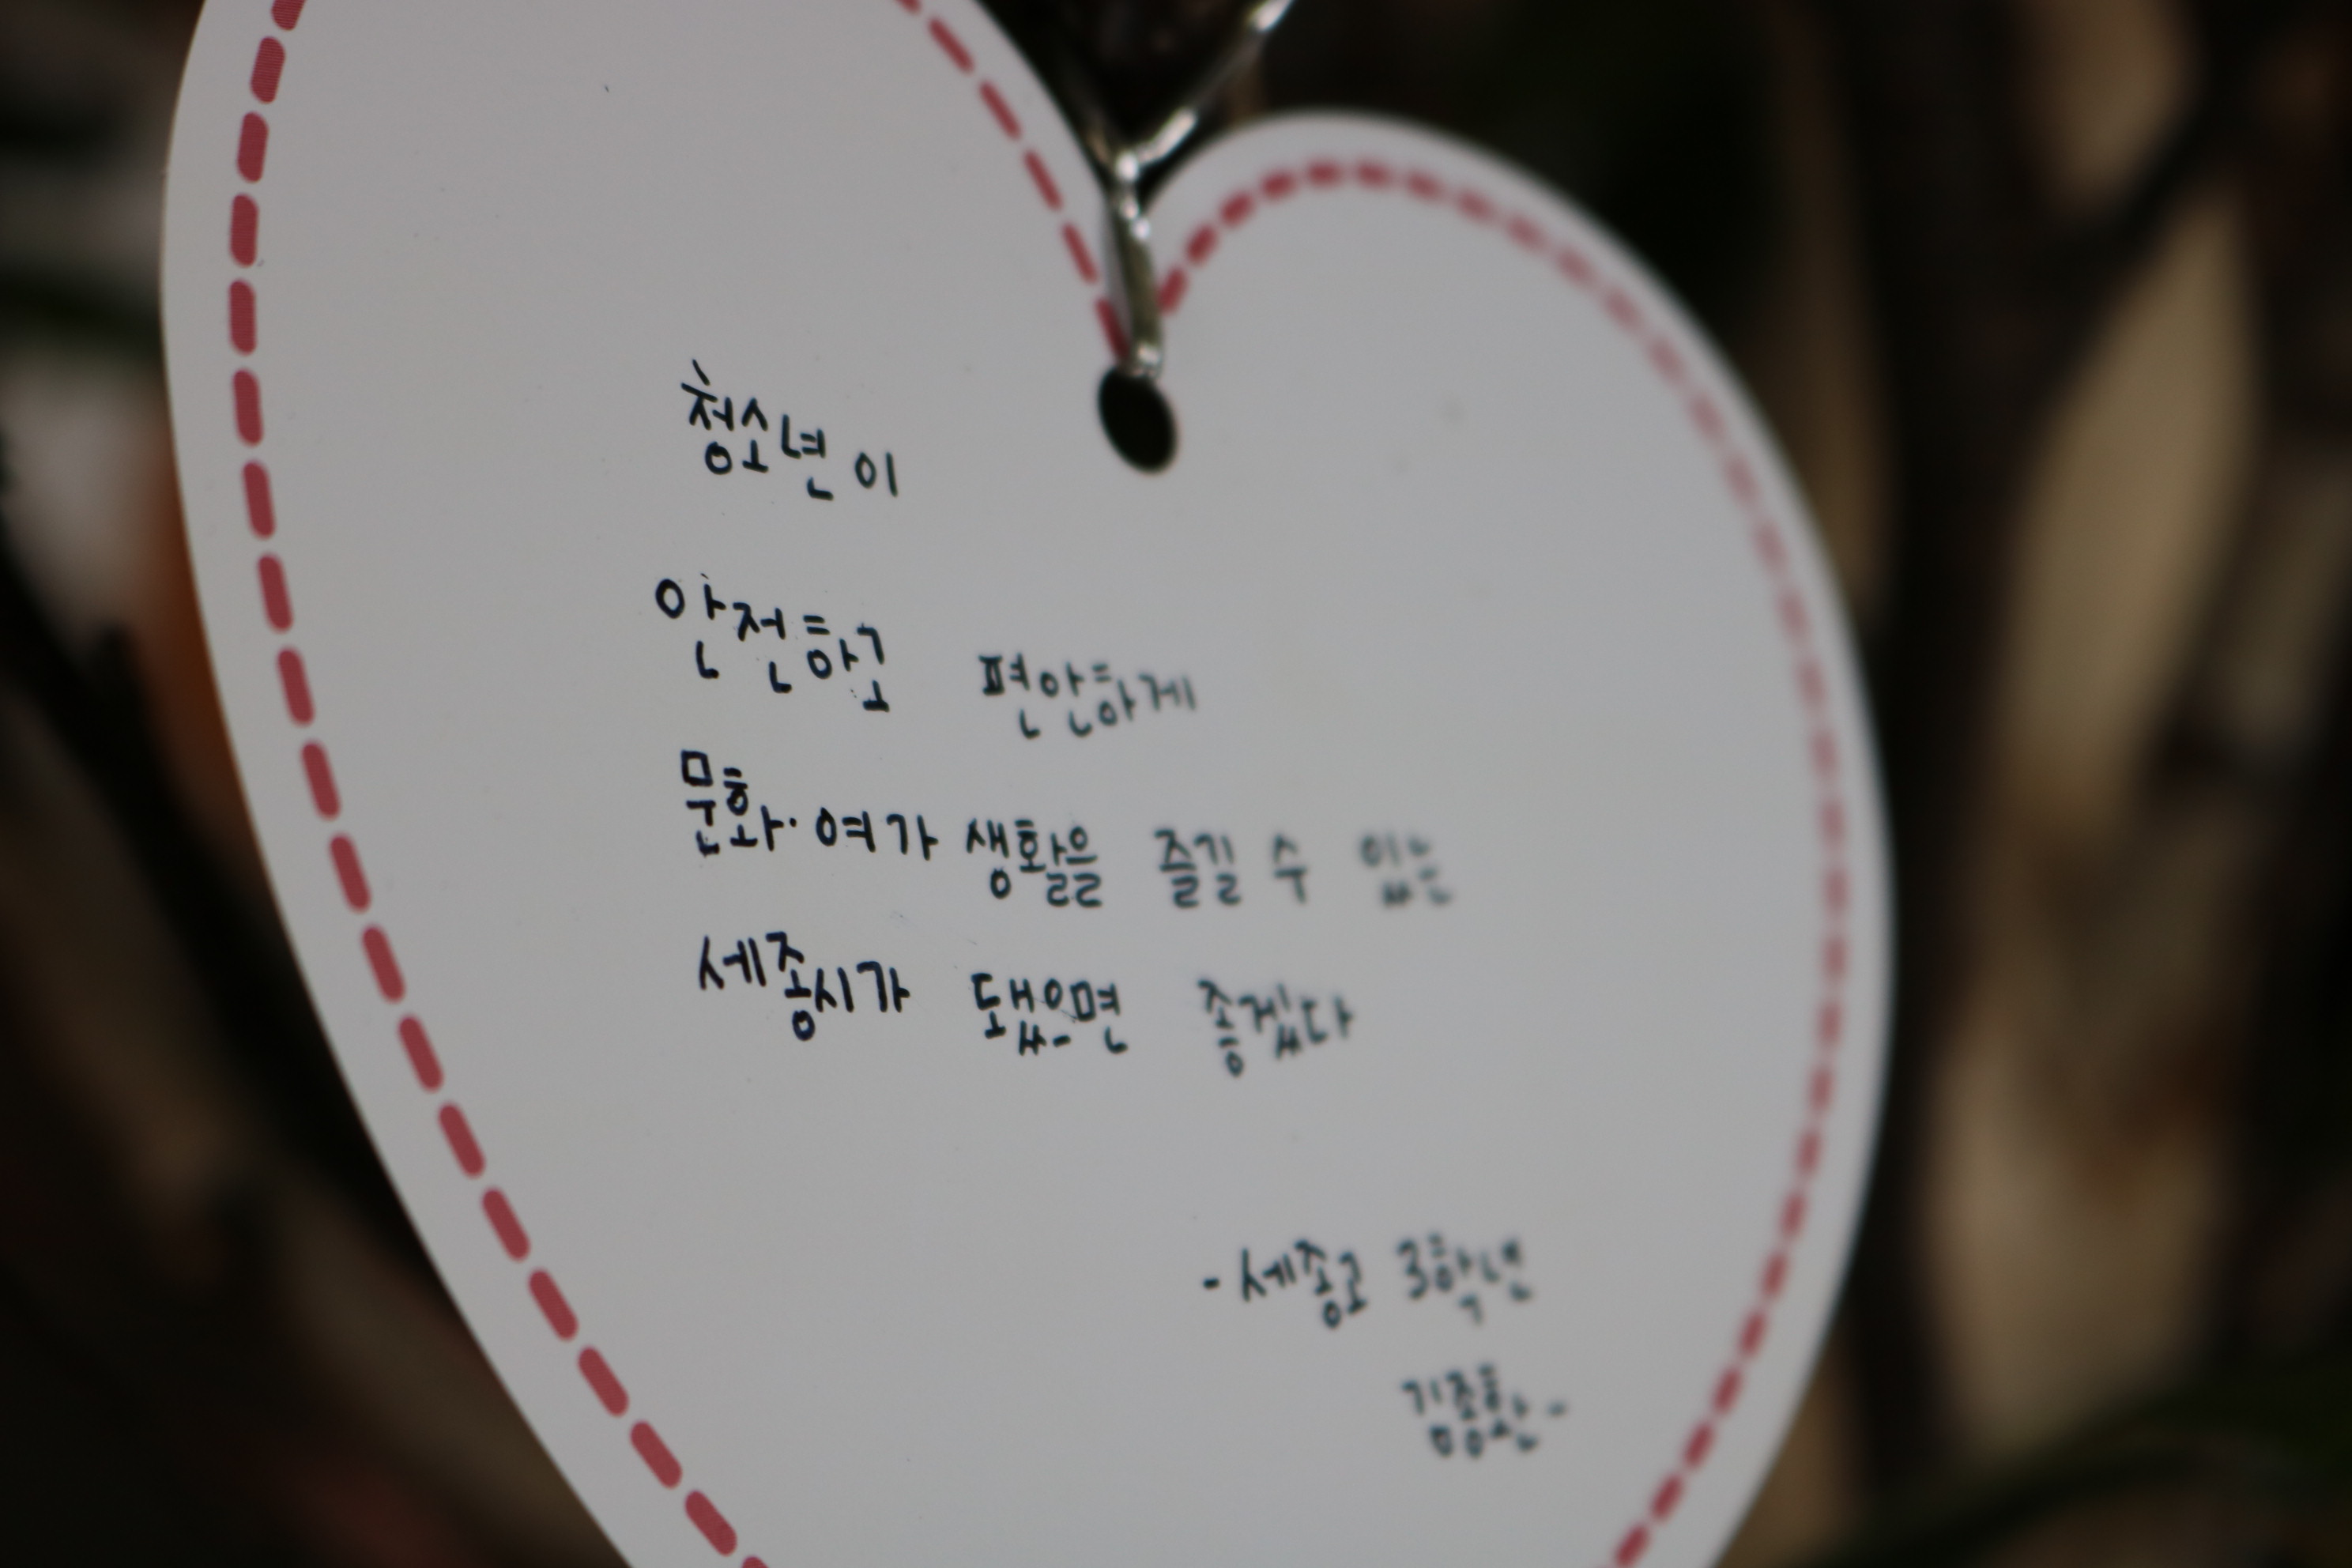 청소년이
안전하고 편안하게
문화·여가 생활을 즐길 수 있는
세종시가 됐으면 좋겠다
-세종고 3학년
김종환-